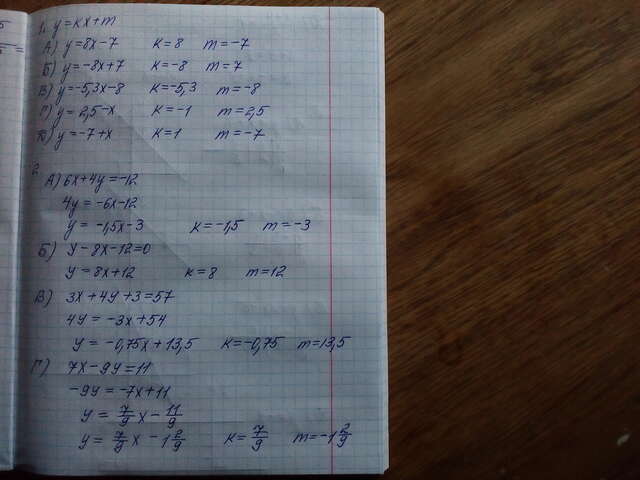 5
5 =
1. y=кx+m
А) y=8x-7 к=8 m=-7
Б) y=-8x+7 к=-8 m=7
В) y=-5,3x-8 к=-5,3 m=-8
Г) y=2,5-x к=-1 m=2,5
y=-7+x к=1 m=-7
2.
А) 6x+4y=-12
4y=-6x-12
y=-1,5x-3 к=-1,5 m=-3
Б) y-8x-12=0
y=8x+12 к=8 m=12
В) 3x+4y+3=57
4y=-3x+54
y=-0,75x+13,5 к=-0,75 m=13,5
Г) 7x-9y=11
-9y=-7x+11
y=7/9x-11/9
y=7/9x-1 2/9 к=7/9 m=-1 2/9